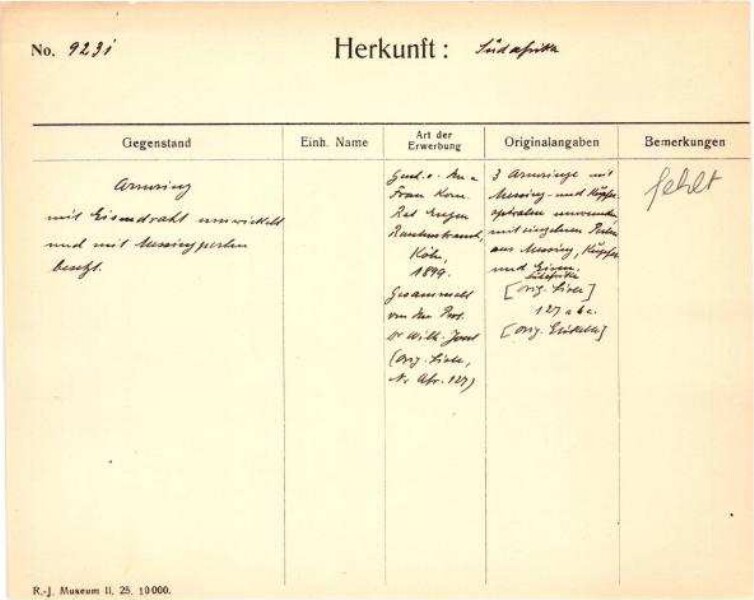 No. 9231
Herkunft: Südafrika
Gegenstand
Einh. Name
Art der
Erwerbung
Originalangaben
Bemerkungen
Armring
mit Eisendraht umwickelt
und mit Messingperlen
besetzt.
Frau Kom.
Rat Eugen
Rautenstrauch,
Köln,
1899.
Gesammelt
von dem Prof.
Dr Wilh. Joest
(orig. Liste,
N. Afr. 127)
3 Armringe mit
Messing- und Kupfer
spiralen umwunden,
mit einzelnen Perlen
aus Messing, Kupfer
und Eisen.
Südafrika
[orig. Liste]
127 a b c.
[orig. Etikett]
fehlt
R.-J. Museum II. 25. 10000.